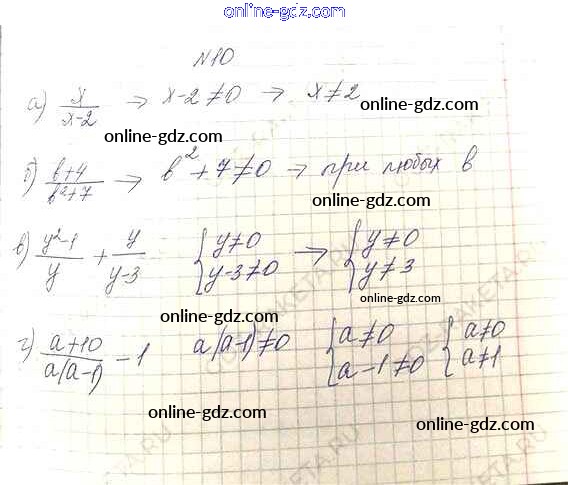 www.online-gdz.com
N10
а) x/(x-2) → x-2≠0 → x≠2
online-gdz.com
online-gdz.com
б) (b+4)/(b²+7) → b²+7≠0 → при любых b
online-gdz.com
в) (y²-1)/y + y/(y-3) { y≠0 y-3≠0 → { y≠0 y≠3
online-gdz.com
г) (a+10)/(a(a-1)) - 1 a(a-1)≠0 { a≠0 a-1≠0 { a≠0 a≠1
online-gdz.com
online-gdz.com